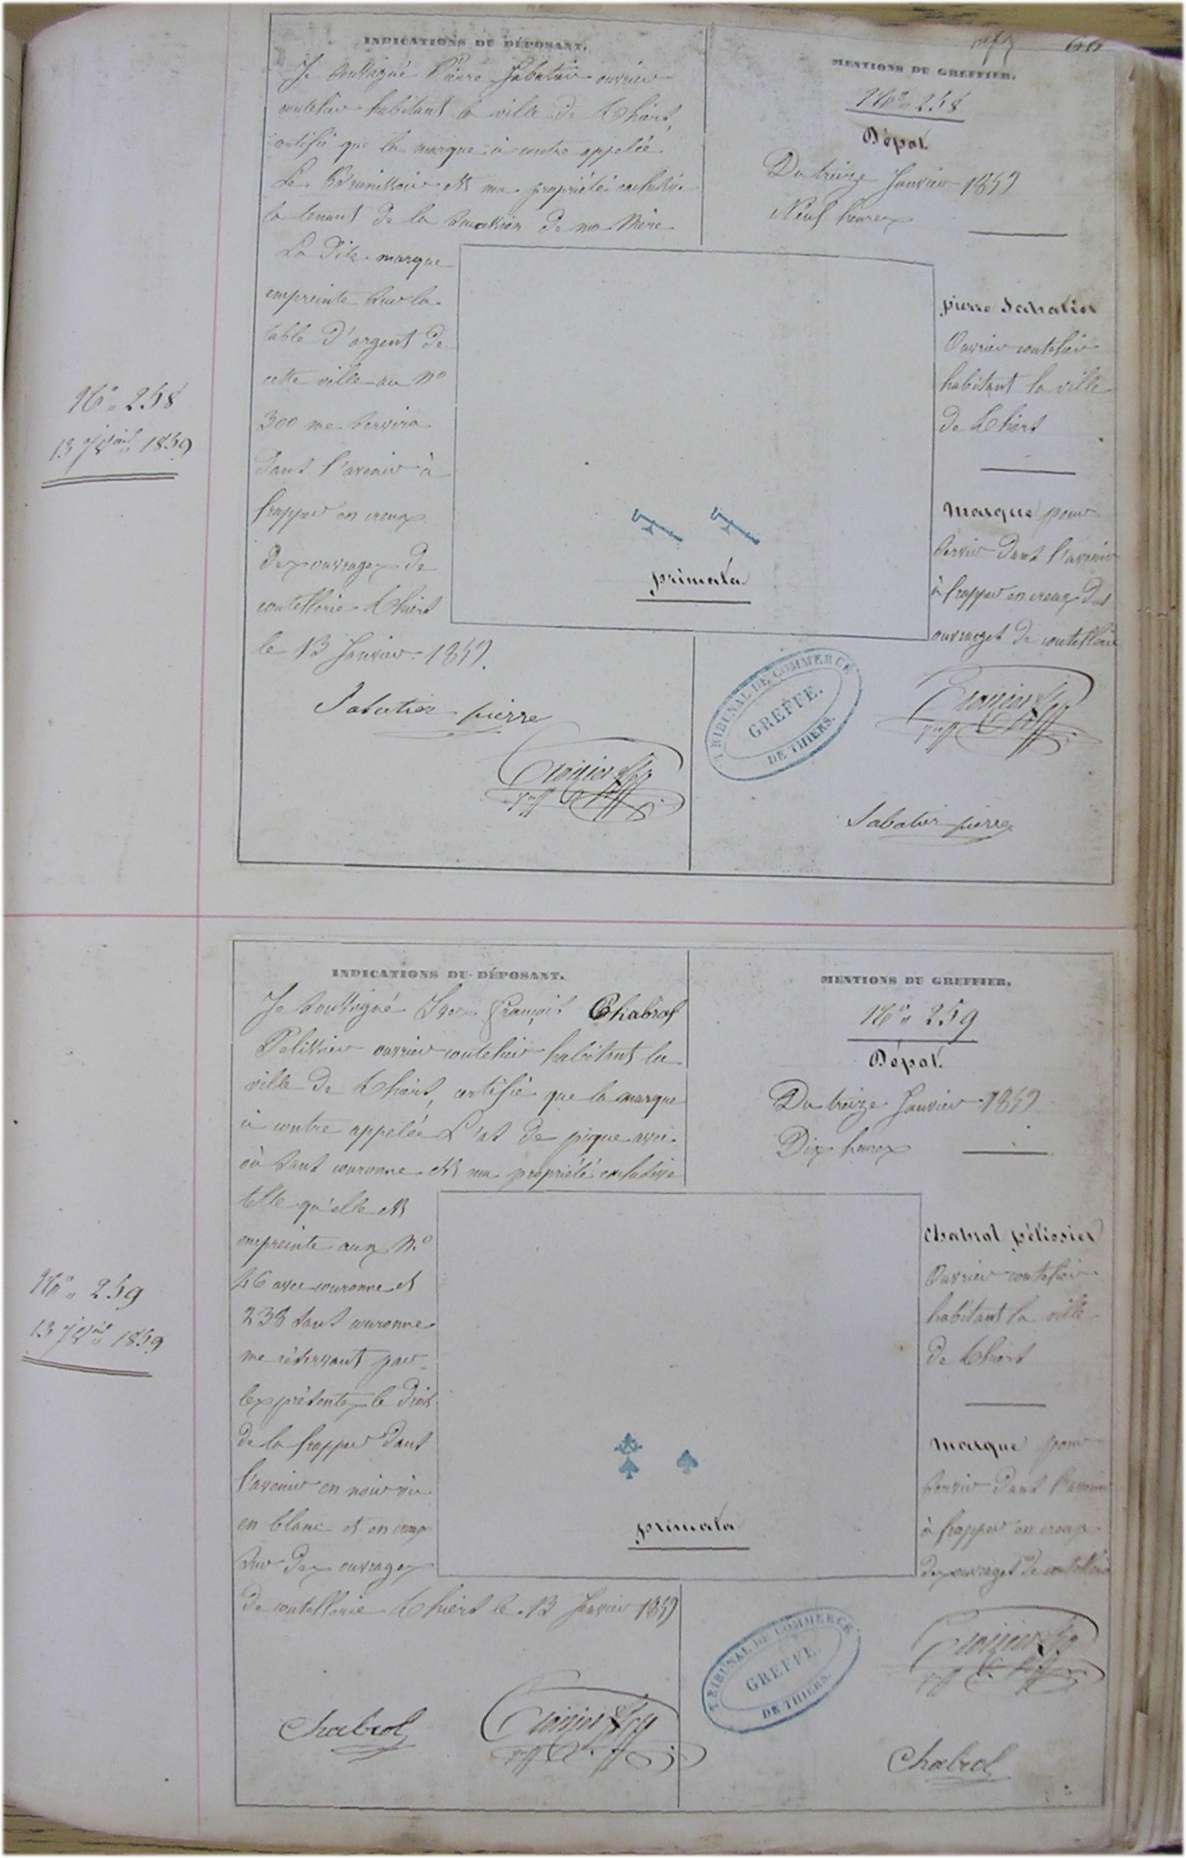 INDICATIONS DU DÉPOSANT.
Je soussigné Pierre Sabatier ouvrier
coutelier habitant la ville de Thiers,
certifie que la marque ci contre appelée
Le est ma propriété exclusive
la tenant de la succession de ma Mère
La dite marque
empreinte sur la
table d'argent de
cette ville au No
300 me servira
dans l'avenir à
frapper en creux
des ouvrages de
coutellerie Thiers
le 13 Janvier 1859.
Sabatier pierre
MENTIONS DU GREFFIER.
No 258
Dépot.
Du treize Janvier 1859
Neuf heures
pierre Sabatier
Ouvrier coutelier
habitant la ville
de Thiers
Marque pour
servir dans l'avenir
à frapper en creux des
ouvrages de coutellerie
primata
TRIBUNAL DE COMMERCE
GREFFE.
DE THIERS.
Sabatier pierre
No 258
13 1859
INDICATIONS DU DÉPOSANT.
Je soussigné François Chabrol
Pelissier ouvrier coutelier habitant la
ville de Thiers, certifie que la marque
ci contre appelée L'as de pique avec
ou sans couronne est ma propriété exclusive
telle qu'elle est
empreinte aux No
46 avec couronne et
238 sans couronne
me réservant par
les présentes le droit
de la frapper dans
l'avenir en noir ou
en blanc et en creux
sur des ouvrages
de coutellerie Thiers le 13 Janvier 1859
Chabrol
MENTIONS DU GREFFIER.
No 259
Dépot.
Du treize Janvier 1859
Dix heures
Chabrol pélissier
Ouvrier coutelier
habitant la ville
de Thiers
Marque pour
servir dans l'avenir
à frapper en creux
des ouvrages de coutellerie
primata
TRIBUNAL DE COMMERCE
GREFFE.
DE THIERS.
Chabrol
No 259
13 1859